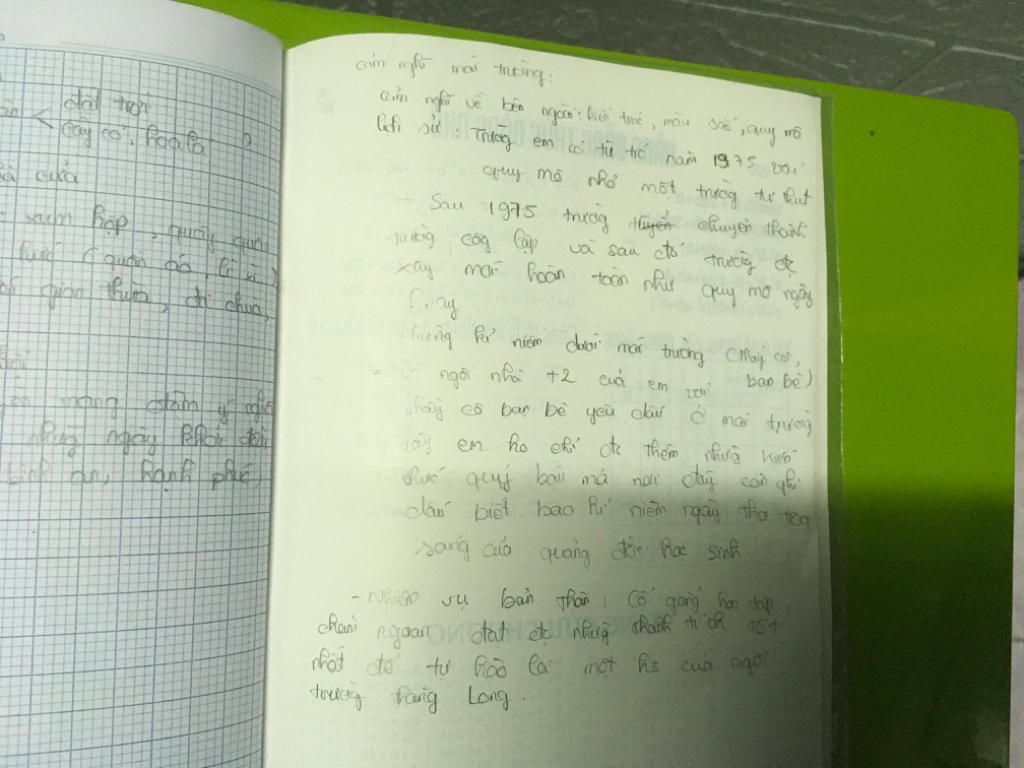 đất trời
cây cỏ, hoa lá
cửa
sum họp, quây quần
(quần áo, lì xì...)
giao thừa, đi chùa,
mang đậm ý nghĩ
những ngày khởi đầu
bình an, hạnh phúc,
cảm nghĩ mái trường:
cảm nghĩ về bên ngoài: kiến trúc, màu sắc, quy mô
lịch sử: Trường em có từ trc năm 1975 với
quy mô nhỏ một trường tư thục
Sau 1975 trường chuyển thành
trường côg lập và sau đó trường đc
xây mới hoàn toàn như quy mô ngày
nay.
những kỉ niệm dưới mái trường (thầy cô,
bạn bè)
ngôi nhà t2 của em với
thầy cô bạn bè yêu dấu. Ở mái trường
này em ko chỉ đc thêm nhữg kiến
thức quý báu mà nơi đây còn ghi
dấu biết bao kỉ niệm ngây thơ trog
sáng của quãng đời học sinh
- Nhiệm vụ bản thân: Cố gắng học tập,
chăm ngoan đạt đc nhữg thành tích tốt
nhất để tự hào là một hs của ngôi
trường thăng Long.